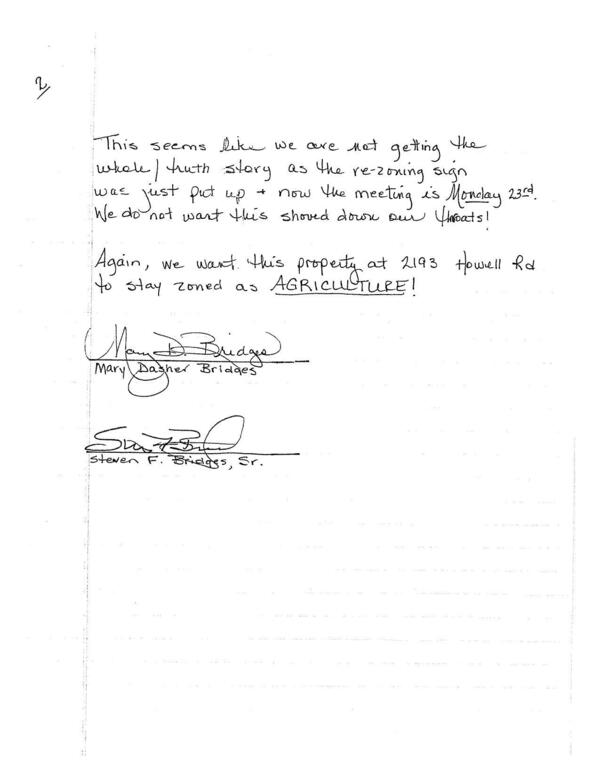 2/
This seems like we are not getting the
whole/truth story as the re-zoning sign
was just put up + now the meeting is Monday 23rd.
We do not want this shoved down our throats!
Again, we want this property at 2193 Howell Rd
to stay zoned as AGRICULTURE!
Mary D. Bridges
Mary Dasher Bridges
Steven F. Bridges, Sr.